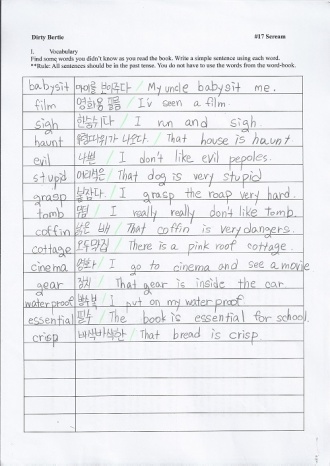 Dirty Bertie #17 Scream
I. Vocabulary
Find some words you didn't know as you read the book. Write a simple sentence using each word.
**Rule: All sentences should be in the past tense. You do not have to use the words from the word-book.
babysit 아이를 봐주다 / My uncle babysit me.
film 영화용 필름 / I'v seen a film.
sigh 한숨쉬다 / I run and sigh.
haunt 나오다. / That house is haunt
evil 나쁜 / I don't like evil pepoles.
stupid 어리석은 / That dog is very stupid
grasp 붙잡다. / I grasp the roap very hard.
tomb / I really really don't like tomb.
coffin / That coffin is very dangers.
cottage 오두막집 / There is a pink roof cottage.
cinema 영화 / I go to cinema and see a movie
gear 장치 / That gear is inside the car.
waterproof / I put on my waterproof.
essential 필수 / The book is essential for school.
crisp 바삭바삭한 / That bread is crisp.